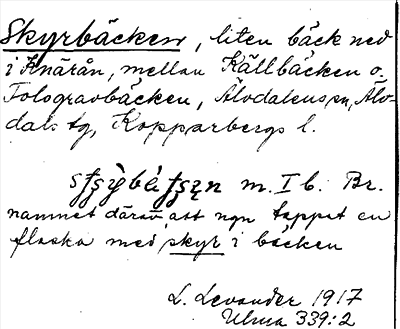 Skyrbäcken, liten bäck ned
i Knärån, mellan Källbäcken o.
Fologravbäcken, Älvdalens sn, Älv-
dals tg, Kopparbergs l.
m. I b. Br.
namnet därav att ngn tappat en
flaska med skyr i bäcken
L. Levander 1917
Ulma 339:2